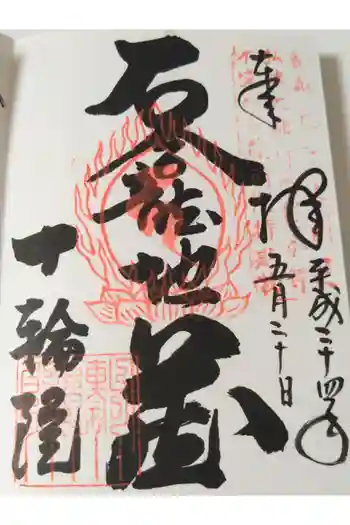 奉拝
平成二十四年
五月二十日
石龕地蔵
十輪院